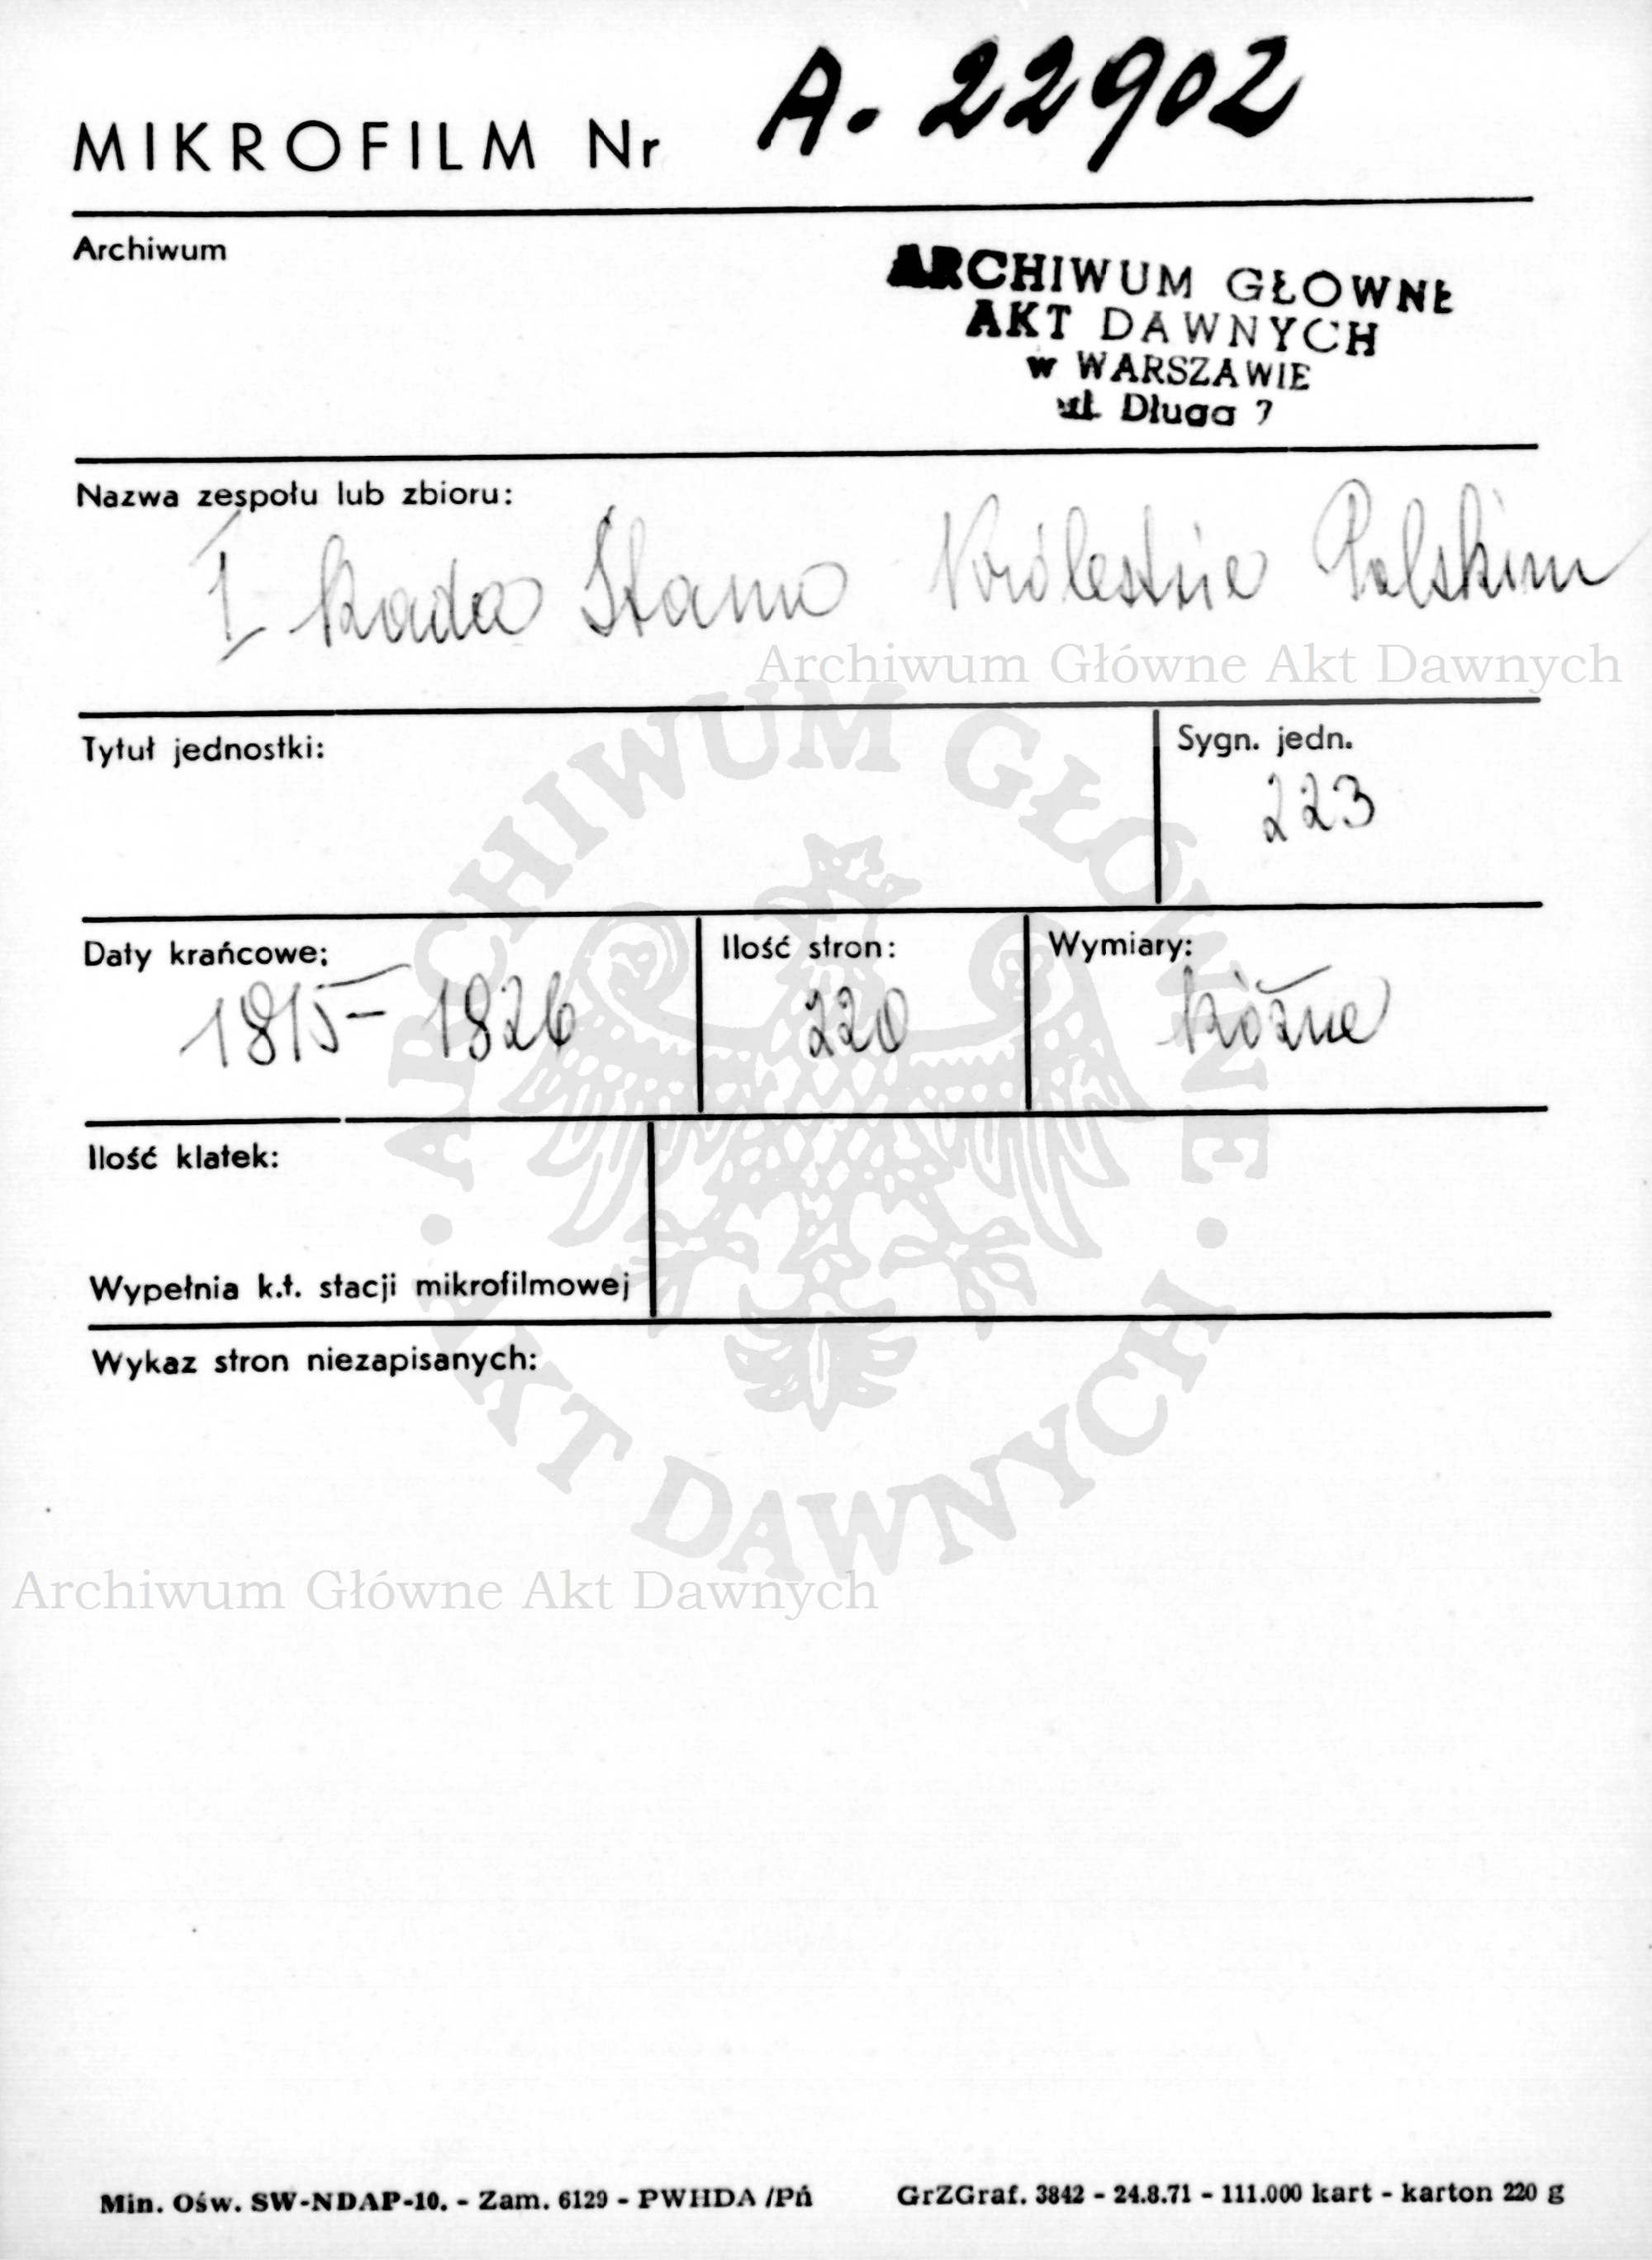 MIKROFILM Nr A. 22902
Archiwum
ARCHIWUM GŁOWNE
AKT DAWNYCH
w WARSZAWIE
ul. Długa 7
Nazwa zespołu lub zbioru:
I Rada Stanu Królestwie Polskim
Archiwum Główne Akt Dawnych
Tytuł jednostki:
Sygn. jedn.
223
Daty krańcowe:
1815 - 1826
Ilość stron:
220
Wymiary:
Różne
Ilość klatek:
Wypełnia k.t. stacji mikrofilmowej
Wykaz stron niezapisanych:
ARCHIWUM GŁÓWNE
· AKT DAWNYCH ·
Archiwum Główne Akt Dawnych
Min. Ośw. SW-NDAP-10. - Zam. 6129 - PWHDA /Pń GrZGraf. 3842 - 24.8.71 - 111.000 kart - karton 220 g